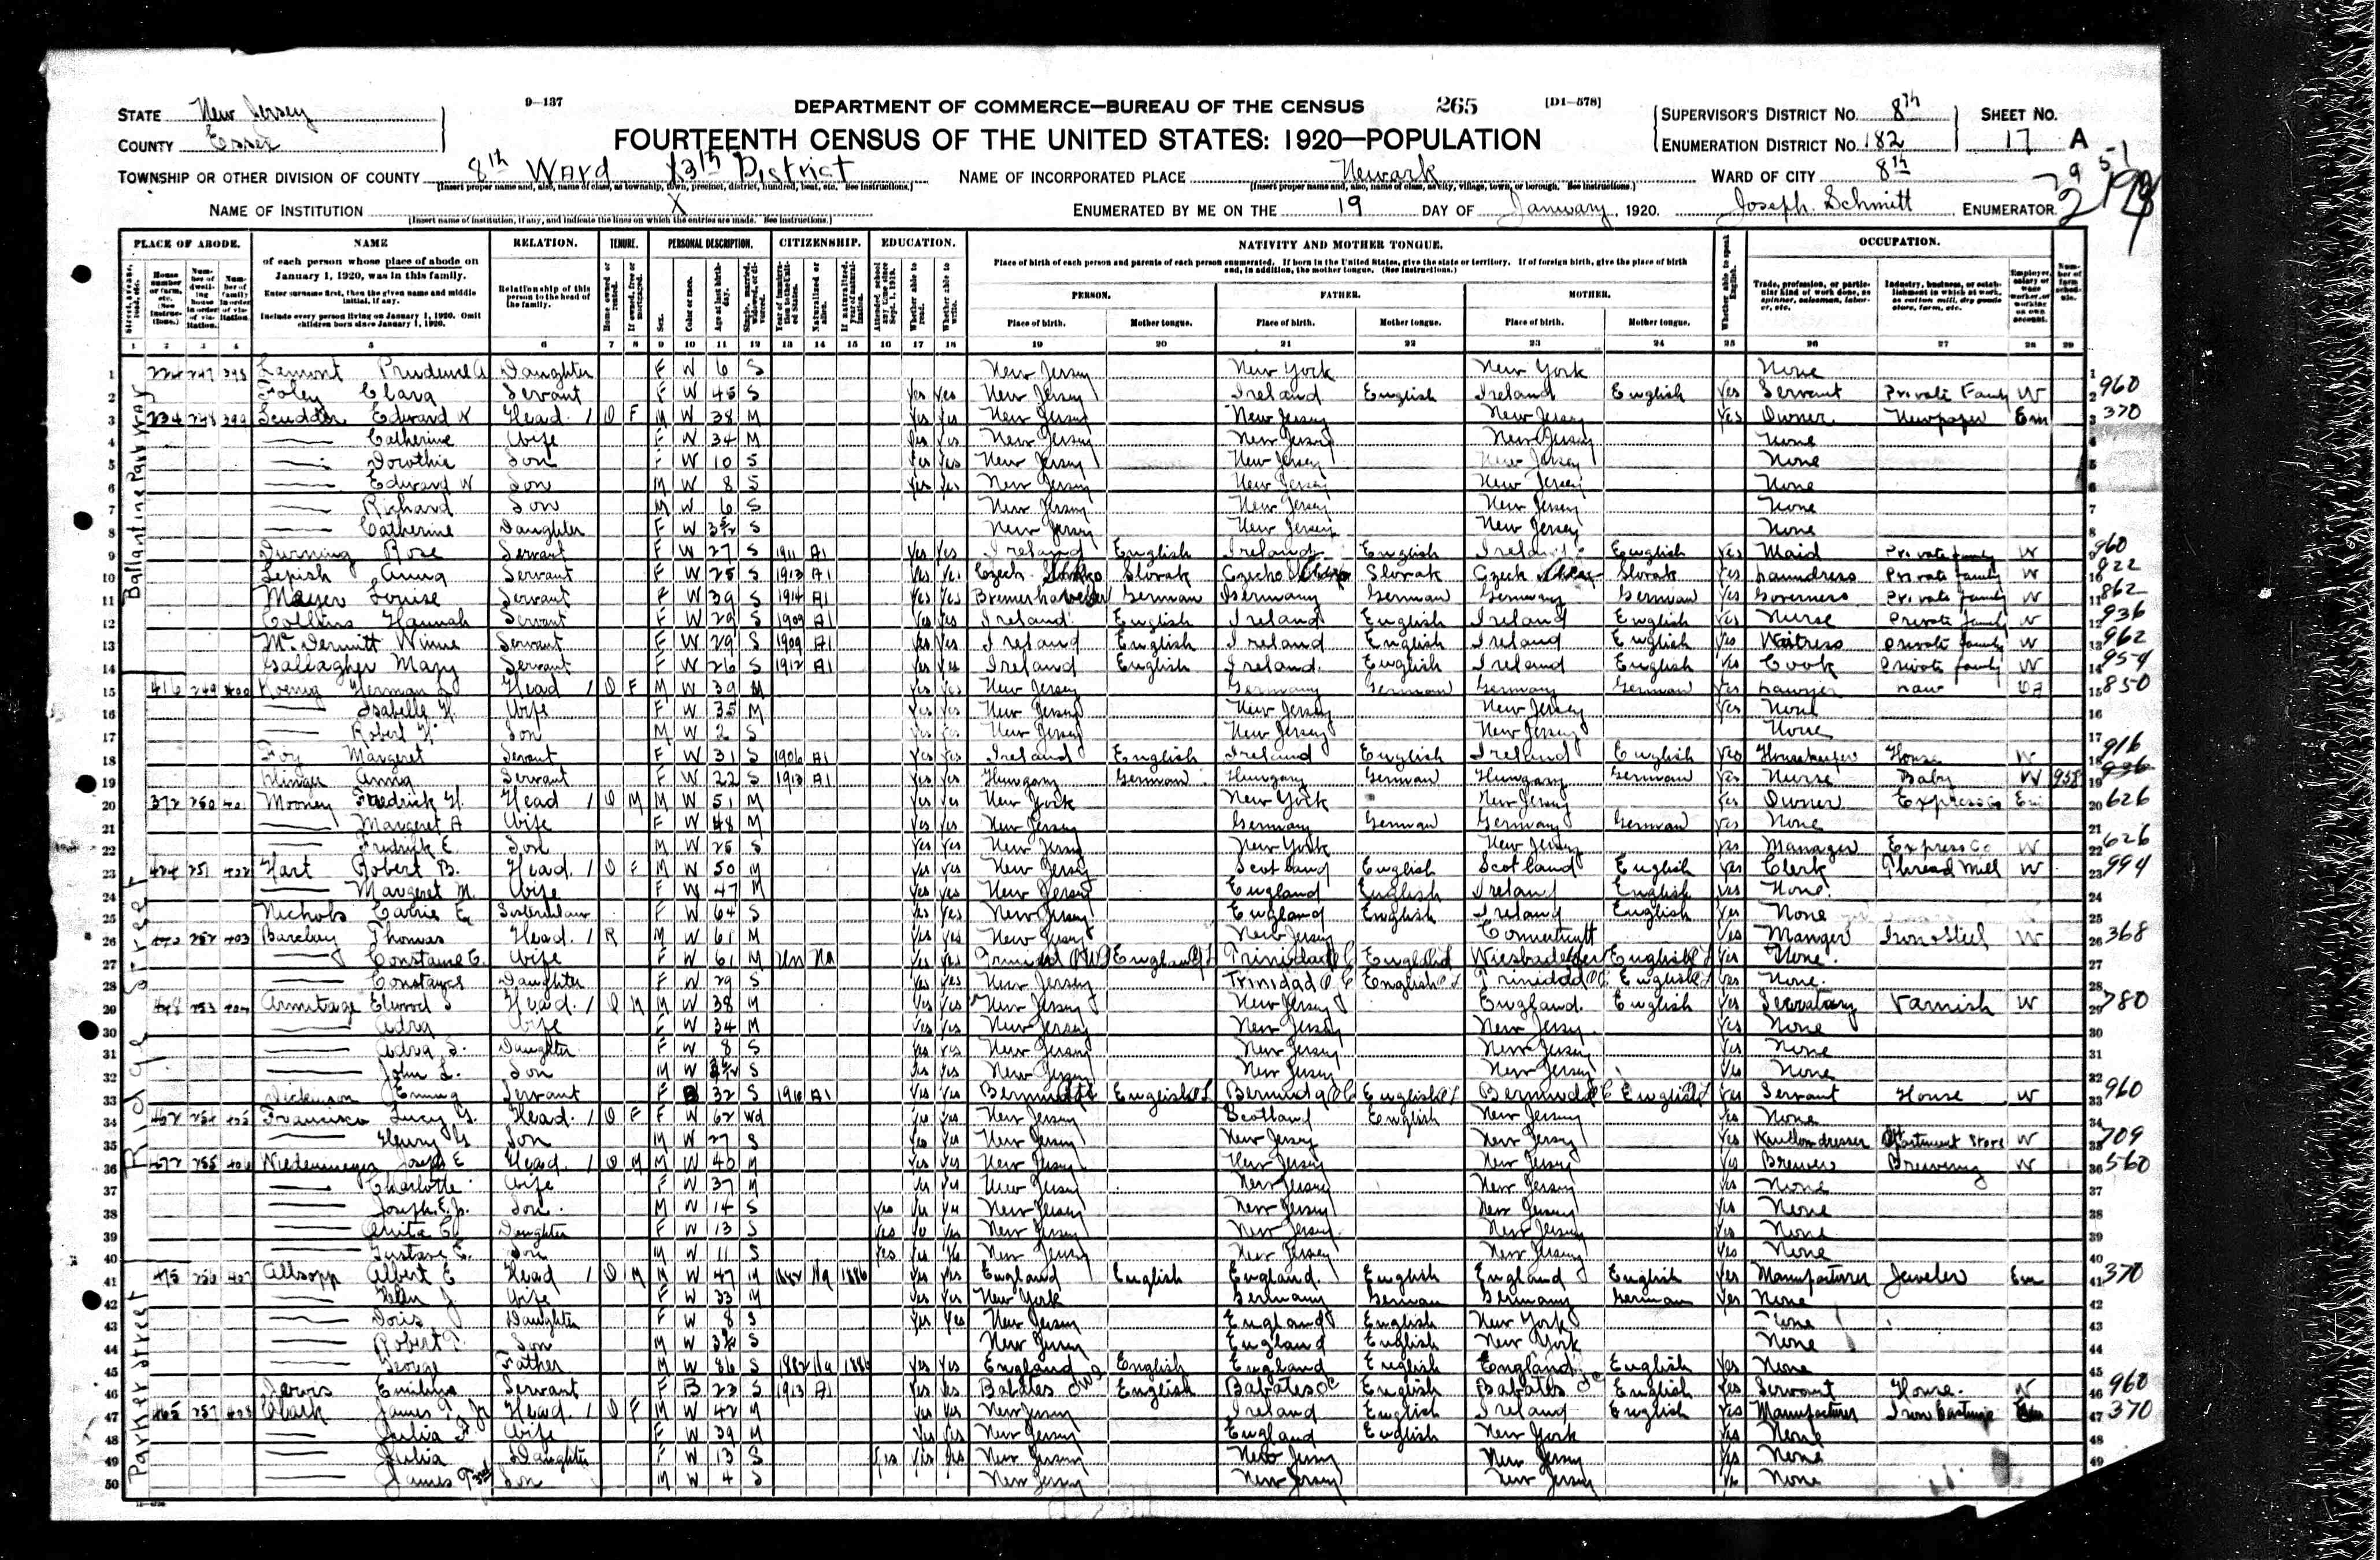 STATE New Jersey
COUNTY Essex
9—137
DEPARTMENT OF COMMERCE—BUREAU OF THE CENSUS
265
[D1—578]
FOURTEENTH CENSUS OF THE UNITED STATES: 1920—POPULATION
SUPERVISOR'S DISTRICT NO. 8th
ENUMERATION DISTRICT NO. 182
SHEET NO.
17 A
TOWNSHIP OR OTHER DIVISION OF COUNTY 8th Ward 13th District
[Insert proper name and, also, name of class, as township, town, precinct, district, hundred, beat, etc. See instructions.]
NAME OF INCORPORATED PLACE Newark
[Insert proper name and, also, name of class, as city, village, town, or borough. See instructions.]
WARD OF CITY 8th
NAME OF INSTITUTION X
[Insert name of institution, if any, and indicate the lines on which the entries are made. See instructions.]
ENUMERATED BY ME ON THE 19 DAY OF January, 1920. Joseph Schmitt ENUMERATOR.
PLACE OF ABODE. NAME RELATION. TENURE. PERSONAL DESCRIPTION. CITIZENSHIP. EDUCATION. NATIVITY AND MOTHER TONGUE. OCCUPATION.
of each person whose place of abode on January 1, 1920, was in this family.
Enter surname first, then the given name and middle initial, if any.
Include every person living on January 1, 1920. Omit children born since January 1, 1920.
Relationship of this person to the head of the family.
Place of birth of each person and parents of each person enumerated. If born in the United States, give the state or territory. If of foreign birth, give the place of birth and, in addition, the mother tongue. (See instructions.)
PERSON. FATHER. MOTHER.
Place of birth. Mother tongue. Place of birth. Mother tongue. Place of birth. Mother tongue.
1 2 3 4 5 6 7 8 9 10 11 12 13 14 15 16 17 18 19 20 21 22 23 24 25 26 27 28 29
Ballantine Parkway
1 Lamont Prudence A Daughter F W 6 S New Jersey New York New York None
2 Foley Clara Servant F W 45 S Yes Yes New Jersey Ireland English Ireland English Yes Servant Private Family W 960
3 234 248 399 Scudder Edward W Head 1 O F M W 38 M Yes Yes New Jersey New Jersey New Jersey Yes Owner Newspaper Em 370
4 Catherine Wife F W 34 M Yes Yes New Jersey New Jersey New Jersey None
5 Dorothie Son F W 10 S Yes Yes New Jersey New Jersey New Jersey None
6 Edward W Son M W 8 S Yes Yes New Jersey New Jersey New Jersey None
7 Richard Son M W 6 S New Jersey New Jersey New Jersey None
8 Catherine Daughter F W S New Jersey New Jersey New Jersey None
9 Rose Servant F W 27 S 1911 Al Yes Yes Ireland English Ireland English Ireland English Yes Maid Private family W 960
10 Lepish Anna Servant F W 25 S 1913 Al Yes Yes Czech Slovak Czecho Slovak Czech Slovak Yes Laundress Private family W 922
11 Mayer Louise Servant F W 39 S 1914 Al Yes Yes Bremerhaven German Germany German Germany German Yes Governess Private family W 862
12 Collins Hannah Servant F W 29 S 1909 Al Yes Yes Ireland English Ireland English Ireland English Yes Nurse Private family W 936
13 McDermitt Winne Servant F W 29 S 1909 Al Yes Yes Ireland English Ireland English Ireland English Yes Waitress Private family W 962
14 Gallagher Mary Servant F W 26 S 1912 Al Yes Yes Ireland English Ireland English Ireland English Yes Cook Private family W 954
Ridge Street
15 416 249 400 Koenig Herman Head 1 O F M W 39 M Yes Yes New Jersey Germany German Germany German Yes Lawyer Law OA 850
16 Isabelle Wife F W 35 M Yes Yes New Jersey New Jersey New Jersey Yes None
17 Robert Son M W 2 S New Jersey New Jersey New Jersey None
18 Foy Margaret Servant F W 31 S 1906 Al Yes Yes Ireland English Ireland English Ireland English Yes Housekeeper House W 916
19 Klinger Anna Servant F W 22 S 1913 Al Yes Yes Hungary German Hungary German Hungary German Yes Nurse Baby W 936
20 372 250 401 Mooney Fredrick H. Head 1 O M M W 51 M Yes Yes New York New York New Jersey Yes Owner Express Co Em 626
21 Margaret A Wife F W 48 M Yes Yes New Jersey Germany German Germany German Yes None
22 Fredrick E. Son M W 25 S Yes Yes New Jersey New York New Jersey Yes Manager Express Co W 626
23 424 251 402 Hart Robert B. Head 1 O F M W 50 M Yes Yes New Jersey Scotland English Scotland English Yes Clerk Thread Mill W 994
24 Margaret M. Wife F W 47 M Yes Yes New Jersey England English Ireland English Yes None
25 Nichols Carrie E Sisterinlaw F W 64 S Yes Yes New Jersey England English Ireland English Yes None
26 252 403 Barclay Thomas Head 1 R M W 61 M Yes Yes New Jersey New Jersey Connecticutt Yes Manger Iron & Steel W 368
27 Constance C. Wife F W 61 M Un Na Yes Yes Trinidad Wiesbaden Yes None
28 Constance Daughter F W 29 S Yes Yes New Jersey Trinidad English Trinidad English Yes None
29 448 253 404 Armitage Elwood S Head 1 O M M W 38 M Yes Yes New Jersey New Jersey England English Yes Secretary Varnish W 780
30 Adra Wife F W 34 M Yes Yes New Jersey New Jersey New Jersey Yes None
31 Adra S. Daughter F W 8 S Yes Yes New Jersey New Jersey New Jersey Yes None
32 John L. Son M W S Yes Yes New Jersey New Jersey New Jersey Yes None
33 Dickinson Emma Servant F B 32 S 1916 Al Yes Yes Bermuda English Bermuda English Bermuda English Yes Servant House W 960
34 462 254 405 Francisco Lucy G. Head 1 O F F W 62 Wd Yes Yes New Jersey Scotland English New Jersey Yes None
35 Henry G Son M W 27 S Yes Yes New Jersey New Jersey New Jersey Yes Window dresser Store W 709
36 472 255 406 Wiedenmeyer Joseph E Head 1 O M M W 40 M Yes Yes New Jersey New Jersey New Jersey Yes Brewer Brewery W 560
37 Charlotte Wife F W 37 M Yes Yes New Jersey New Jersey New Jersey Yes None
38 Joseph E. Jr. Son M W 14 S Yes Yes Yes New Jersey New Jersey New Jersey Yes None
39 Anita C Daughter F W 13 S Yes Yes Yes New Jersey New Jersey New Jersey Yes None
40 Gustave E. Son M W 11 S Yes Yes Yes New Jersey New Jersey New Jersey Yes None
Parker Street
41 475 256 407 Allsopp Albert E Head 1 O M M W 47 M 1882 Na 1886 Yes Yes England English England English England English Yes Manufacturer Jeweler Em 370
42 Helen J Wife F W 33 M Yes Yes New York Germany German Germany German Yes None
43 Doris Daughter F W 8 S Yes Yes New Jersey England English New York None
44 Robert Son M W S New Jersey England English New York None
45 George Father M W 86 S 1882 Na 1886 Yes Yes England English England English England English Yes None
46 Jarvis Emilina Servant F B 23 S 1913 Al Yes Yes Babates English Babates English Babates English Yes Servant House W 960
47 465 257 408 Clark James T. Jr Head 1 O F M W 42 M Yes Yes New Jersey Ireland English Ireland English Yes Manufacturer Iron Castings Em 370
48 Julia F. Wife F W 39 M Yes Yes New Jersey England English New York Yes None
49 Julia Daughter F W 13 S Yes Yes Yes New Jersey New Jersey New Jersey Yes None
50 James T 3rd Son M W 4 S New Jersey New Jersey New Jersey None